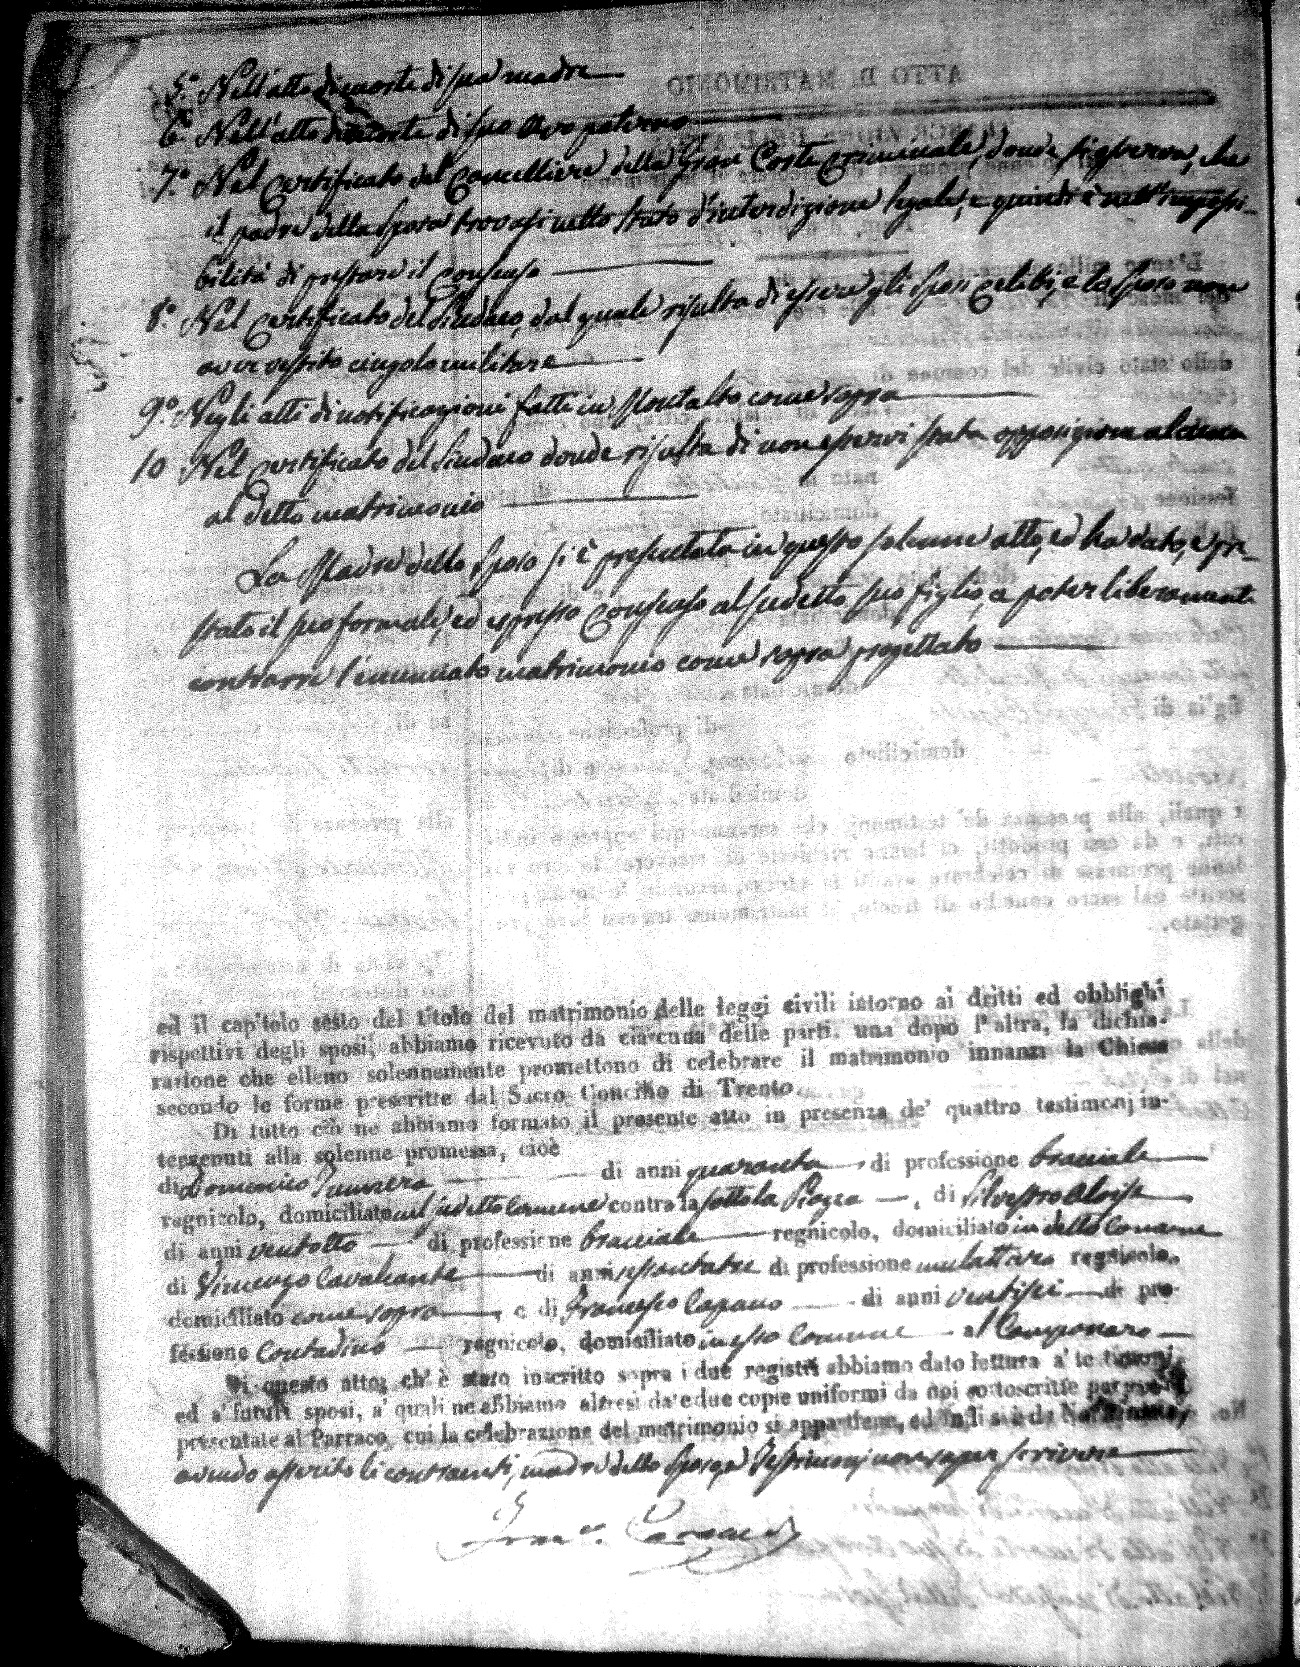 5.° Nell'atto di morte di sua madre
6.° Nell'atto di morte di suo avo paterno
7.° Nel certificato del Cancelliere della Gran Corte Criminale, donde si osserva, che
il padre della sposa trovasi nello stato d'interdizione legale, e quindi è nell'impossi-
bilità di prestare il consenso
8.° Nel certificato del Sindaco, dal quale risulta di essere gli sposi celibi, e lo sposo non
aver vestito cingolo militare
9.° Negli atti di notificazioni fatti in Montalto come sopra
10 Nel certificato del Sindaco donde risulta di non esservi stata opposizione alcuna
al detto matrimonio
La Madre dello sposo si è presentata in questo solenne atto, ed ha dato, e pre-
stato il suo formale, ed espresso consenso al sudetto suo figlio, a poter liberamente
contrarre l'enunciato matrimonio come sopra progettato
ed il capitolo sesto del titolo del matrimonio delle leggi civili intorno ai dritti ed obblighi
rispettivi degli sposi, abbiamo ricevuto da ciascuna delle parti, una dopo l'altra, la dichia-
razione che elleno solennemente promettono di celebrare il matrimonio innanzi la Chiesa
secondo le forme prescritte dal Sacro Concilio di Trento.
Di tutto ciò ne abbiamo formato il presente atto in presenza de' quattro testimonj in-
tervenuti alla solenne promessa, cioè
di Domenico di anni quaranta, di professione bracciale
regnicolo, domiciliato nel sudetto Comune contro la sotto la Piazza, di Silvestro Aloise
di anni ventotto di professione bracciale regnicolo, domiciliato in detto Comune
di Vincenzo Cavalcante di anni sessantatre di professione mulattiero regnicolo,
domiciliato come sopra, e di Francesco Capano di anni ventisei di pro-
fessione Contadino regnicolo, domiciliato in esso Comune al Camponaro
Di questo atto, ch' è stato inscritto sopra i due registri abbiamo dato lettura a' testimonj,
ed a' futuri sposi, a' quali ne abbiamo altresì date due copie uniformi da noi sottoscritte per
presentate al Parroco, cui la celebrazione del matrimonio si appartiene, ed indi si è da Noi
avendo asserito li contraenti, madre dello sposo, e Testimonj non saper scrivere